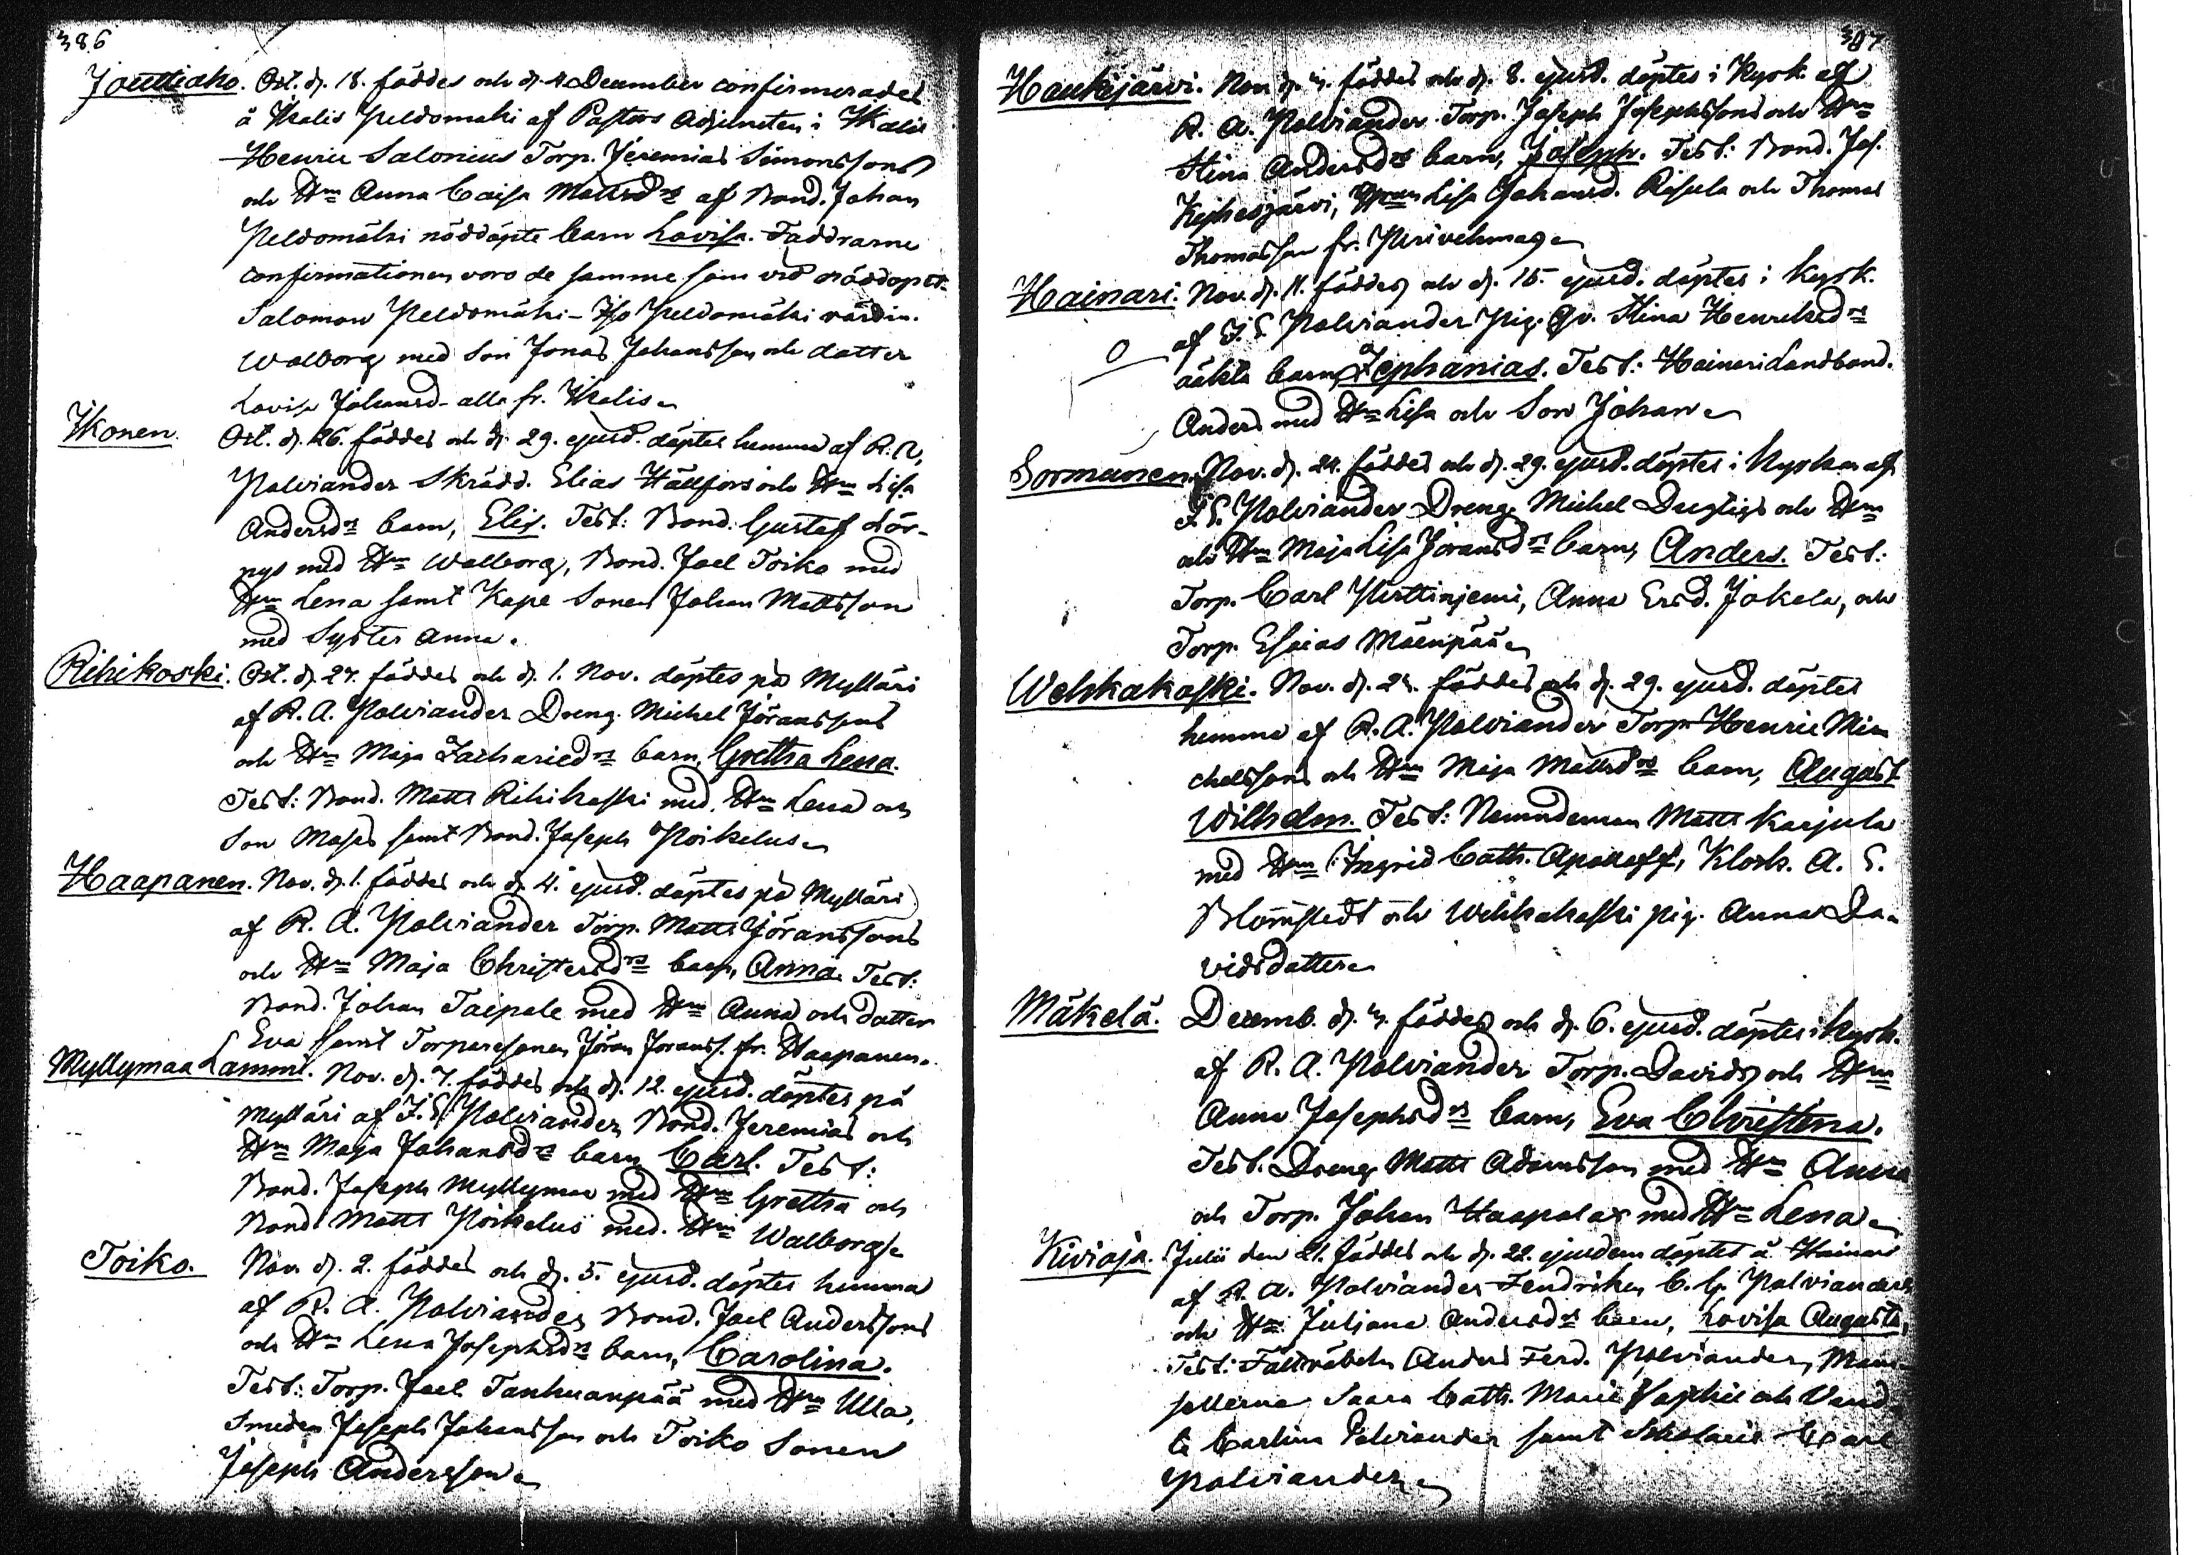 386
Jauttiaho. Oct. d. 18. föddes och d. 4 December confirmerades
å Ikalis Peldomäki af Pastors Adjuncten i Ikalis
Henric Salonius Torp. Jeremias Simonssons
och Hu Anna Caisa Mattsdrs af Bond. Johan
Peldomäki nöddöpte barn Lovisa. Faddrarne
confirmationen voro de samme som vid nöddopet.
Salomon Peldomäki - Iso Peldomäki värdin.
Walborg med Son Jonas Johansson och datter
Lovisa Johansd. alla fr. Ikalis
Ikonen. Oct. d. 26. föddes och d. 29. ejusd. döptes hemma af R. A.
Polviander Skrädd. Elias Hällfors och Hu Lisa
Andersdrs barn, Elis. Test: Bond. Gustaf Lör-
pys med Hu Walborg, Bond. Joel Toiko med
Hu Lena samt Kape Sonen Johan Mattsson
med Syster Anna.
Rihikoski. Oct. d. 27. föddes och d. 1. Nov. döptes på Mylläri
af R. A. Polviander Dreng. Michel Jöranssons
och Hu Maja Zachariedrs barn, Gretha Lena.
Test: Bond. Matts Rihikoski med Hu Lena och
Son Moses samt Bond. Joseph Poikelus
Haapanen. Nov. d. 1. föddes och d. 4. ejusd. döptes på Mylläri
af R. A. Polviander Torp. Matts Jöranssons
och Hu Maja Christersdrs barn, Anna. Test:
Bond. Johan Taipale med Hu Anna och datter
Eva samt Torparesonen Jöran Joranss. fr. Haapanen.
Myllymaa Lammi. Nov. d. 7. föddes och d. 12. ejusd. döptes på
Mylläri af J. E. Polviander Bond. Jeremias och
Hu Maja Johansdrs barn Carl. Test:
Bond. Joseph Myllymaa med Hu Gretha och
Bond. Matts Poikelus med Hu Walborg
Toiko. Nov. d. 2. föddes och d. 5. ejusd. döptes hemma
af R. A. Polviander Bond. Joel Anderssons
och Hu Lena Josephsdrs barn, Carolina.
Test: Torp. Joel Tanhuanpää med Hu Ulla,
Smeden Joseph Johansson och Toiko Sonen
Joseph Andersson
387
Haukijärvi. Nov. d. föddes och d. 8. ejusd. döptes i Kyrk. af
R. A. Polviander Torp. Joseph Josephssons och Hu
Stina Andersdrs barn, Joseph. Test: Bond. Jos.
Lisa Johansd. Risula och Thomas
Thomasson fr.
Hainari. Nov. d. 11. föddes och d. 15. ejusd. döptes i Kyrk.
af J. E. Polviander Pig. Stina Henricsdrs
oäkta barn, Zephanias. Test: Hainari Landbond.
Anders med Hu Lisa och Son Johan
Sormunen. Nov. d. 24. föddes och d. 29. ejusd. döptes i Kyrkan af
J. E. Polviander Dreng. Michel Dugligs och Hu
och Hu Maja Lisa Joransdrs barn, Anders. Test:
Torp. Carl Perttinjemi, Anna Ersd. Jokela, och
Torp. Esaias Mäenpää
Wehkakoski. Nov. d. föddes och d. 29. ejusd. döptes
hemma af R. A. Polviander Torp. Henric Mi-
chelssons och Hu Maja Mattsdrs barn, August
Wilhelm. Test: Nemndeman Matts Karjula
med Hu Ingrid Cath. Klock. A. E.
Blomstedt och Wehkakoski pig. Anna Da-
vidsdatter
Mäkelä. Decemb. d. föddes och d. 6. ejusd. döptes i Kyrk.
af R. A. Polviander Torp. Davids och Hu
Anna Josephsdrs barn, Eva Christina.
Test. Dreng. Matts Adamsson med Hu Anna
och Torp. Johan Haapala med Hu Lena
Kivioja. Julii den 21. föddes och d. 22. ejusdem döptes å Hainari
af R. A. Polviander Fendriken C. G. Polvianders
och Hu Juliana Andersdrs barn, Lovisa Augusta,
Test: Fältväbeln Anders Ferd. Polviander, Mam-
sellerna Saara Cath. Marie Sophie och Vend-
la Carlina Polviander samt Scholaris Carl
Polviander
KODAK SAF